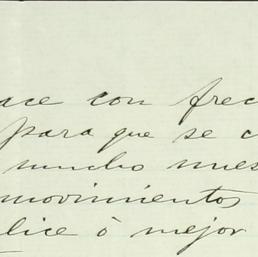 ace con frec
para que se c
mucho nues
movimientos
lice ò mejor